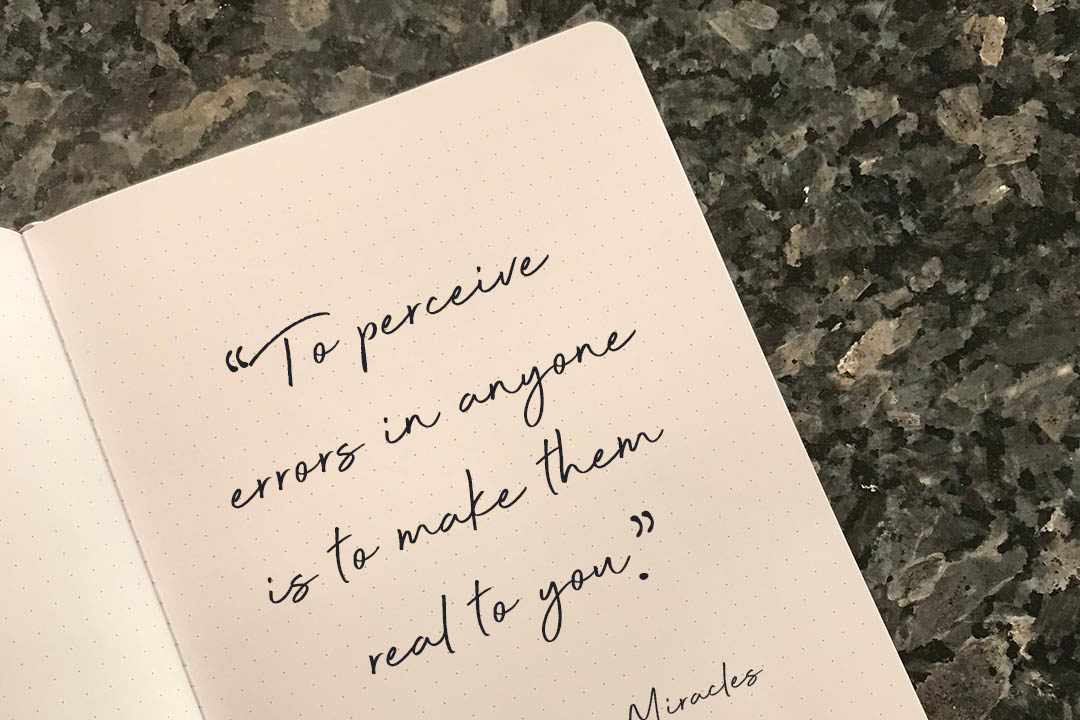 “To perceive
errors in anyone
is to make them
real to you”.
Miracles